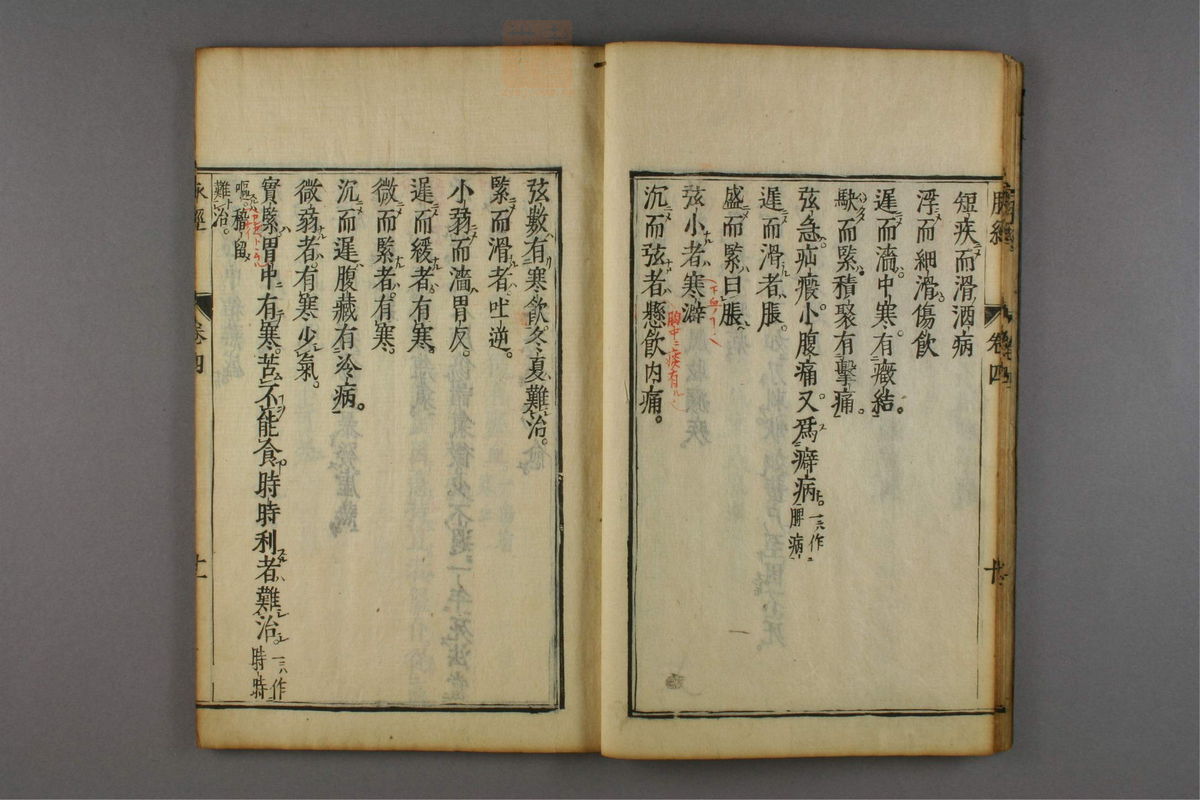 脉經
卷四
十
短疾而滑酒病
浮而細滑傷飲
遲而濇中寒有癥結
駃而緊積聚有擊痛
弦急疝瘕小腹痛又爲癖病一作脾病
遲而滑者脹
盛而緊曰脹
弦小者寒澼
沉而弦者懸飲内痛
胸中ニ痰有ルハ
弦數有寒飲冬夏難治
緊而滑者吐逆
小弱而濇胃反
遲而緩者有寒
微而緊者有寒
沉而遲腹藏有冷病
微弱者有寒少氣
實緊胃中有寒苦不能食時時利者難治一作時時
嘔稽留
難治
脉經
卷四
十一